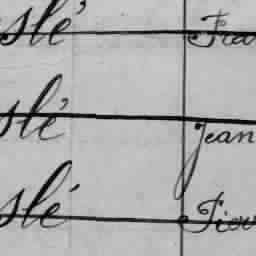 slé Fra
slé Jean
slé Pier